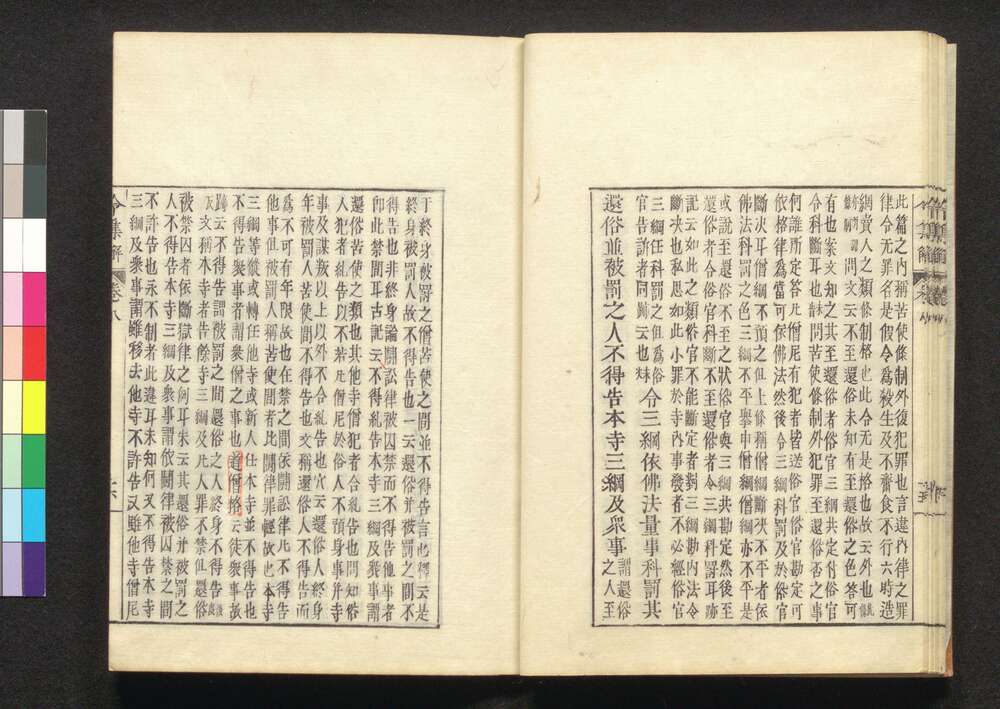 此篇之內稱苦使條制外復犯罪也言違內律之罪
律令无罪名是假令為殺生及不齋食不行六時造
綱賣人之類條制格也此今无是格也故云外也
問文云不至還俗未知有至還俗之色答可
有也案文知之其至還俗者俗官三綱共定付俗官
令科斷耳也問苦使條制外犯罪至還俗否之事
何誰所定答凡僧尼有犯者皆送俗官俗官勘定可
依格律為當可依佛法然後令三綱科罰及於俗官
斷決耳僧綱不預之但上條稱僧綱斷決不平者依
佛法科罰之色三綱不平擧申僧綱僧綱亦不平是
或說至還俗不至之狀俗官與三綱共勘定然後至
還俗者令俗官科斷不至還俗者令三綱科罰耳跡
記云如此之類俗官不能斷定者對三綱勘內法令
斷決也私思如此小罪於寺內事發者不必經俗官
三綱任科罰之但為俗令三綱依佛法量事科罰其
官告訴者同跡云也
還俗並被罰之人不得告本寺三綱及衆事謂還俗之人至
于終身被罰之僧苦使之間並不得告言也釋云是
終身被罰人故不得告也一云還俗并被罰之間不
得告也非終身論鬪訟律被囚禁而不得告他事者
卽此禁間耳古記云不得糺告本寺三綱及衆事謂
還俗苦使之類也其他寺僧犯者合糺告也問知俗
人犯者糺告以不若凡僧尼於俗人不預身事并寺
事及謀叛以上以外不合糺告也穴云還俗人終身
年被罰人苦使間不得告也文稱還俗人不得告而
為不可有年限故也在禁之間依鬪訟律凡不得告
他事但被罰人稱苦使間者比鬪律罪輕故也本寺
三綱等縱或轉任他寺或新人任本寺並不得告也
不得告衆事者謂衆僧之事也道僧格云徒衆事故
跡云不得告謂被罰之間還俗之人終身不得告
文稱本寺者告餘寺三綱及凡人罪不禁但還俗
被禁囚者依斷獄律之何耳朱云其還俗并被罰之
人不得告本寺三綱及衆事謂依鬪律被囚禁之間
不許告也永不制者此違耳未知何又不得告本寺
三綱及衆事謂雖移去他寺不許告又雖他寺僧尼
令集解
卷八